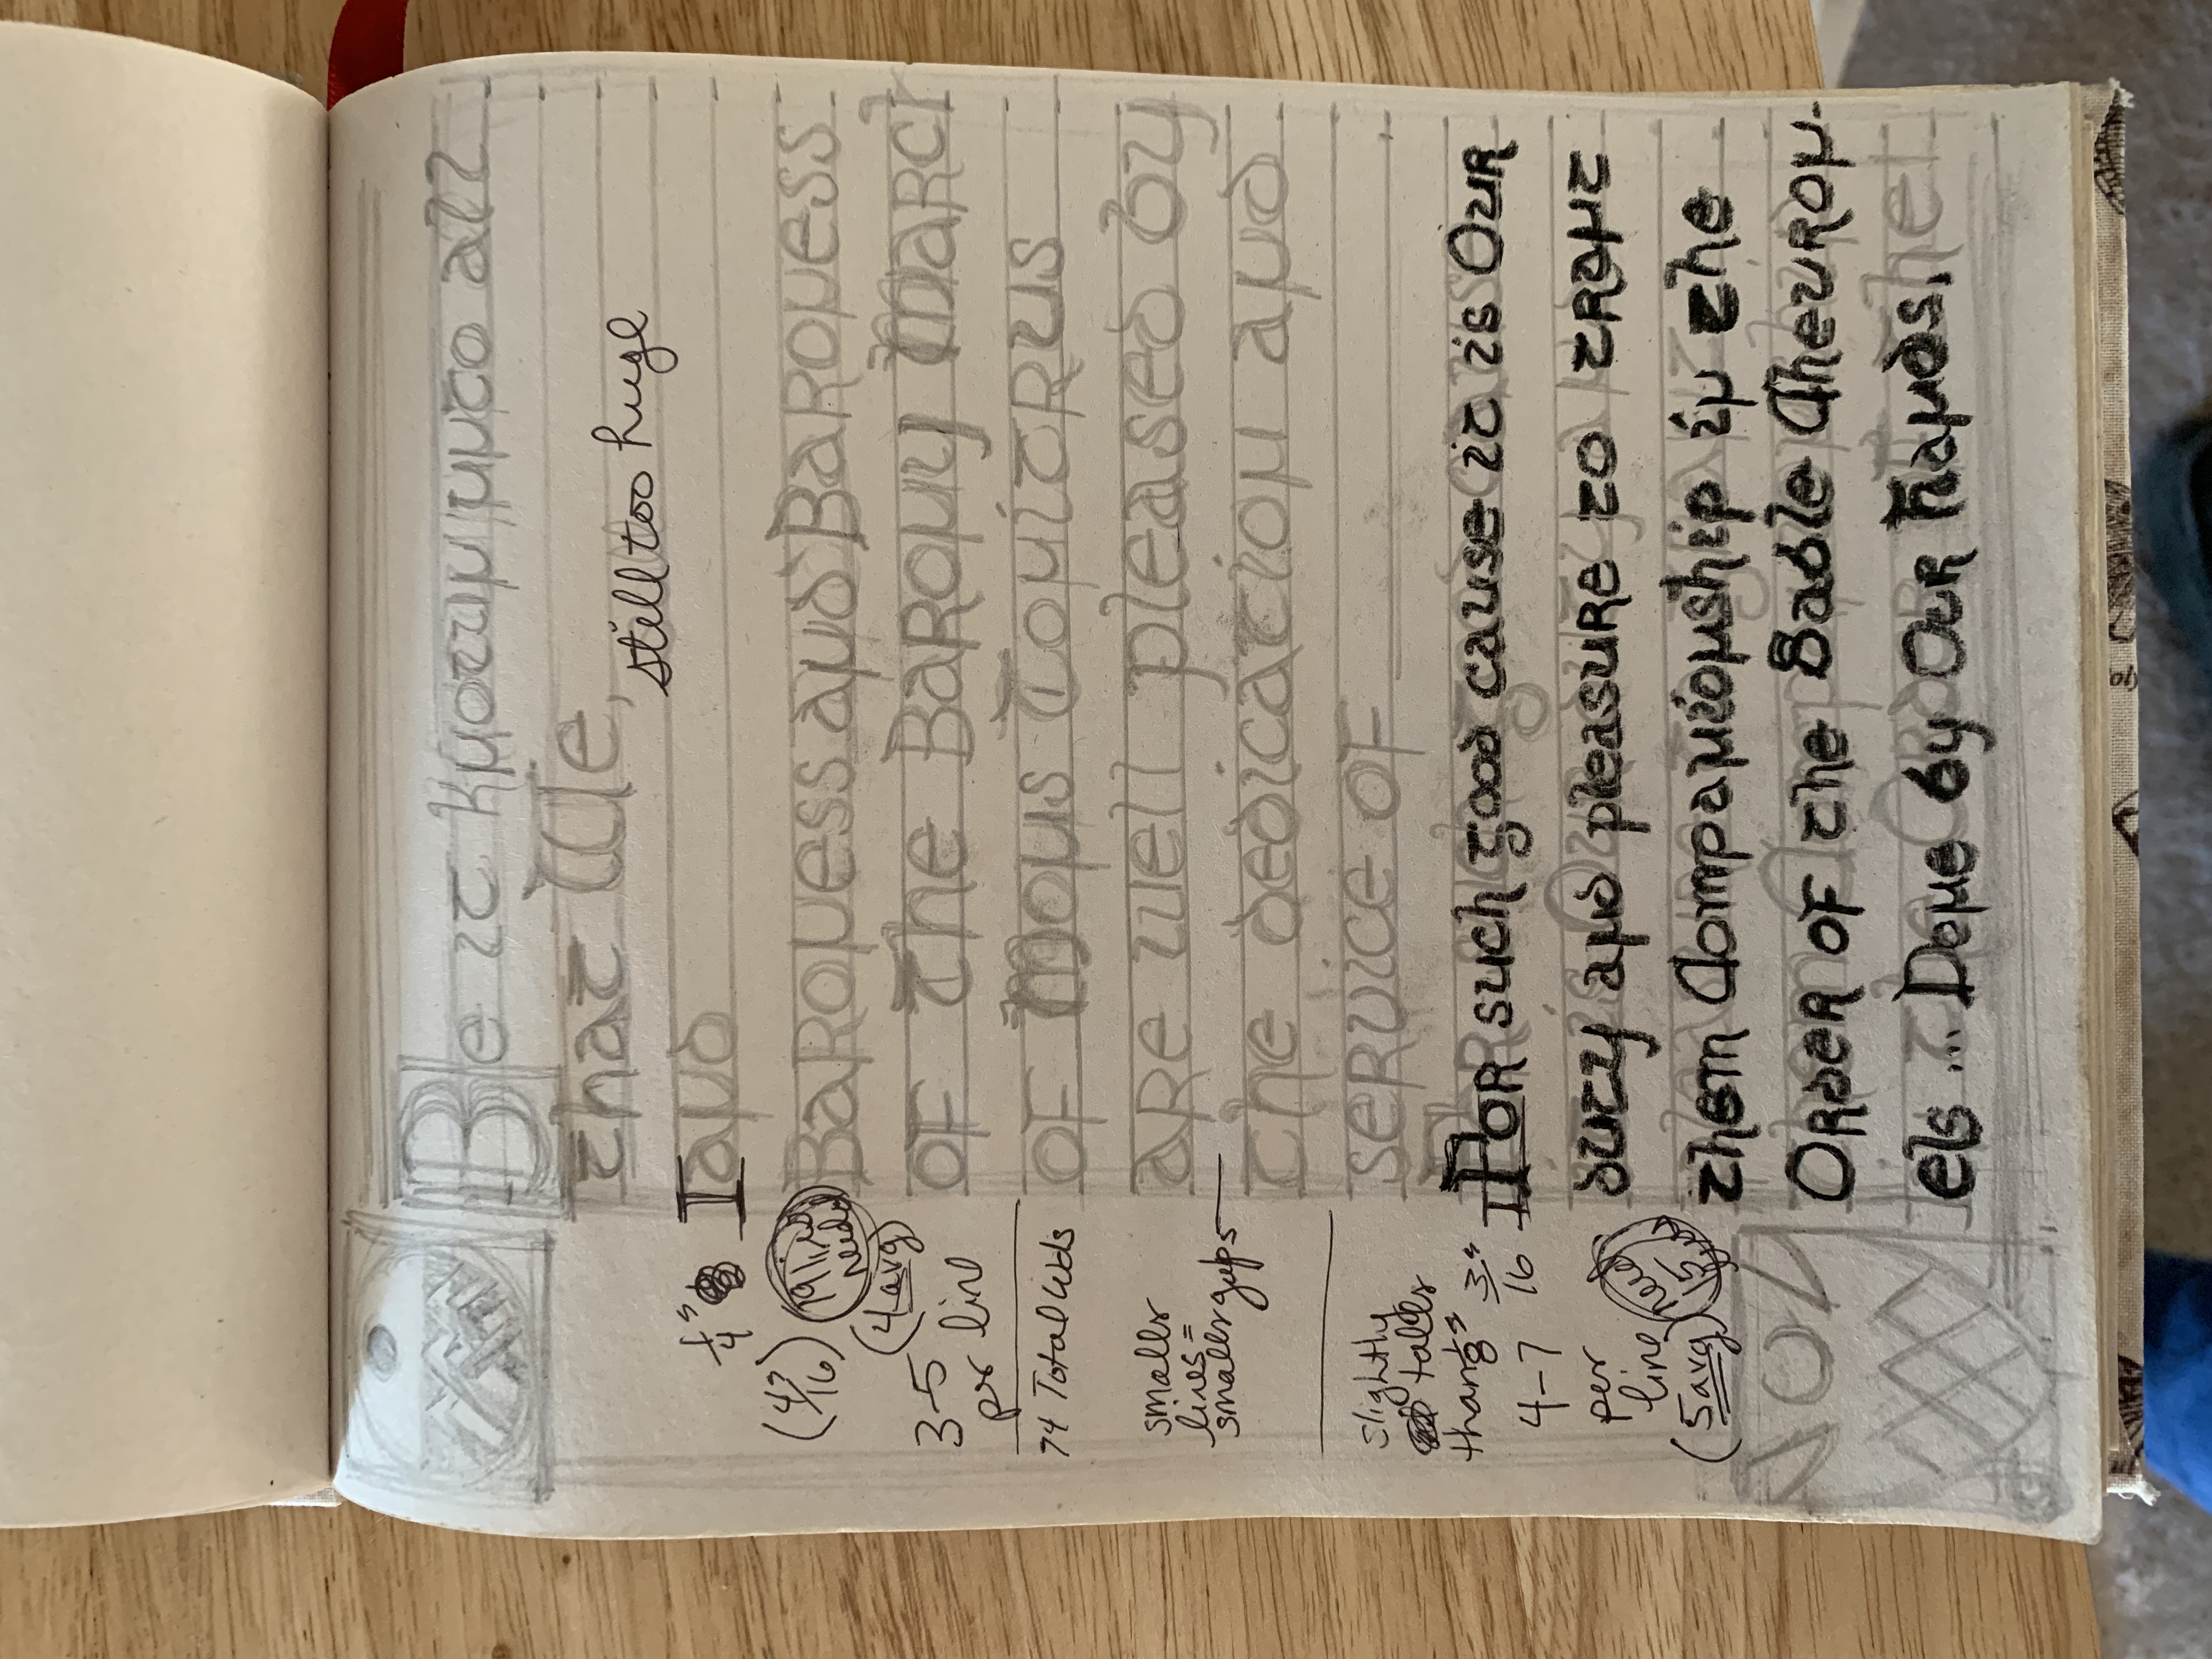 Be it known unto all
that We,
still too huge
and
Baroness and Baroness
of the Barony March
of Mons Tonitrus
are well pleased by
the dedication and
service of
For such good cause it is Our
duty and pleasure to trant
them Companionship in the
Order of the Sable Chevron-
els ... Done by Our Hands.
1/4"
I
(4?/16)
19 lines needed
(4 avg)
3-5
per line
74 Total wds
smallr
lines =
smallr gaps
slightly
tallr
than 1/8"
3/16"
I
4-7
per
line
(5 avg)
need 15 lines